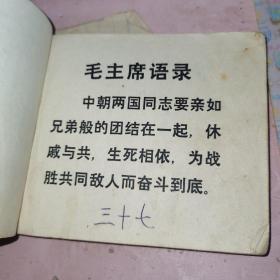 毛主席语录
中朝两国同志要亲如
兄弟般的团结在一起，休
戚与共，生死相依，为战
胜共同敌人而奋斗到底。
三十七